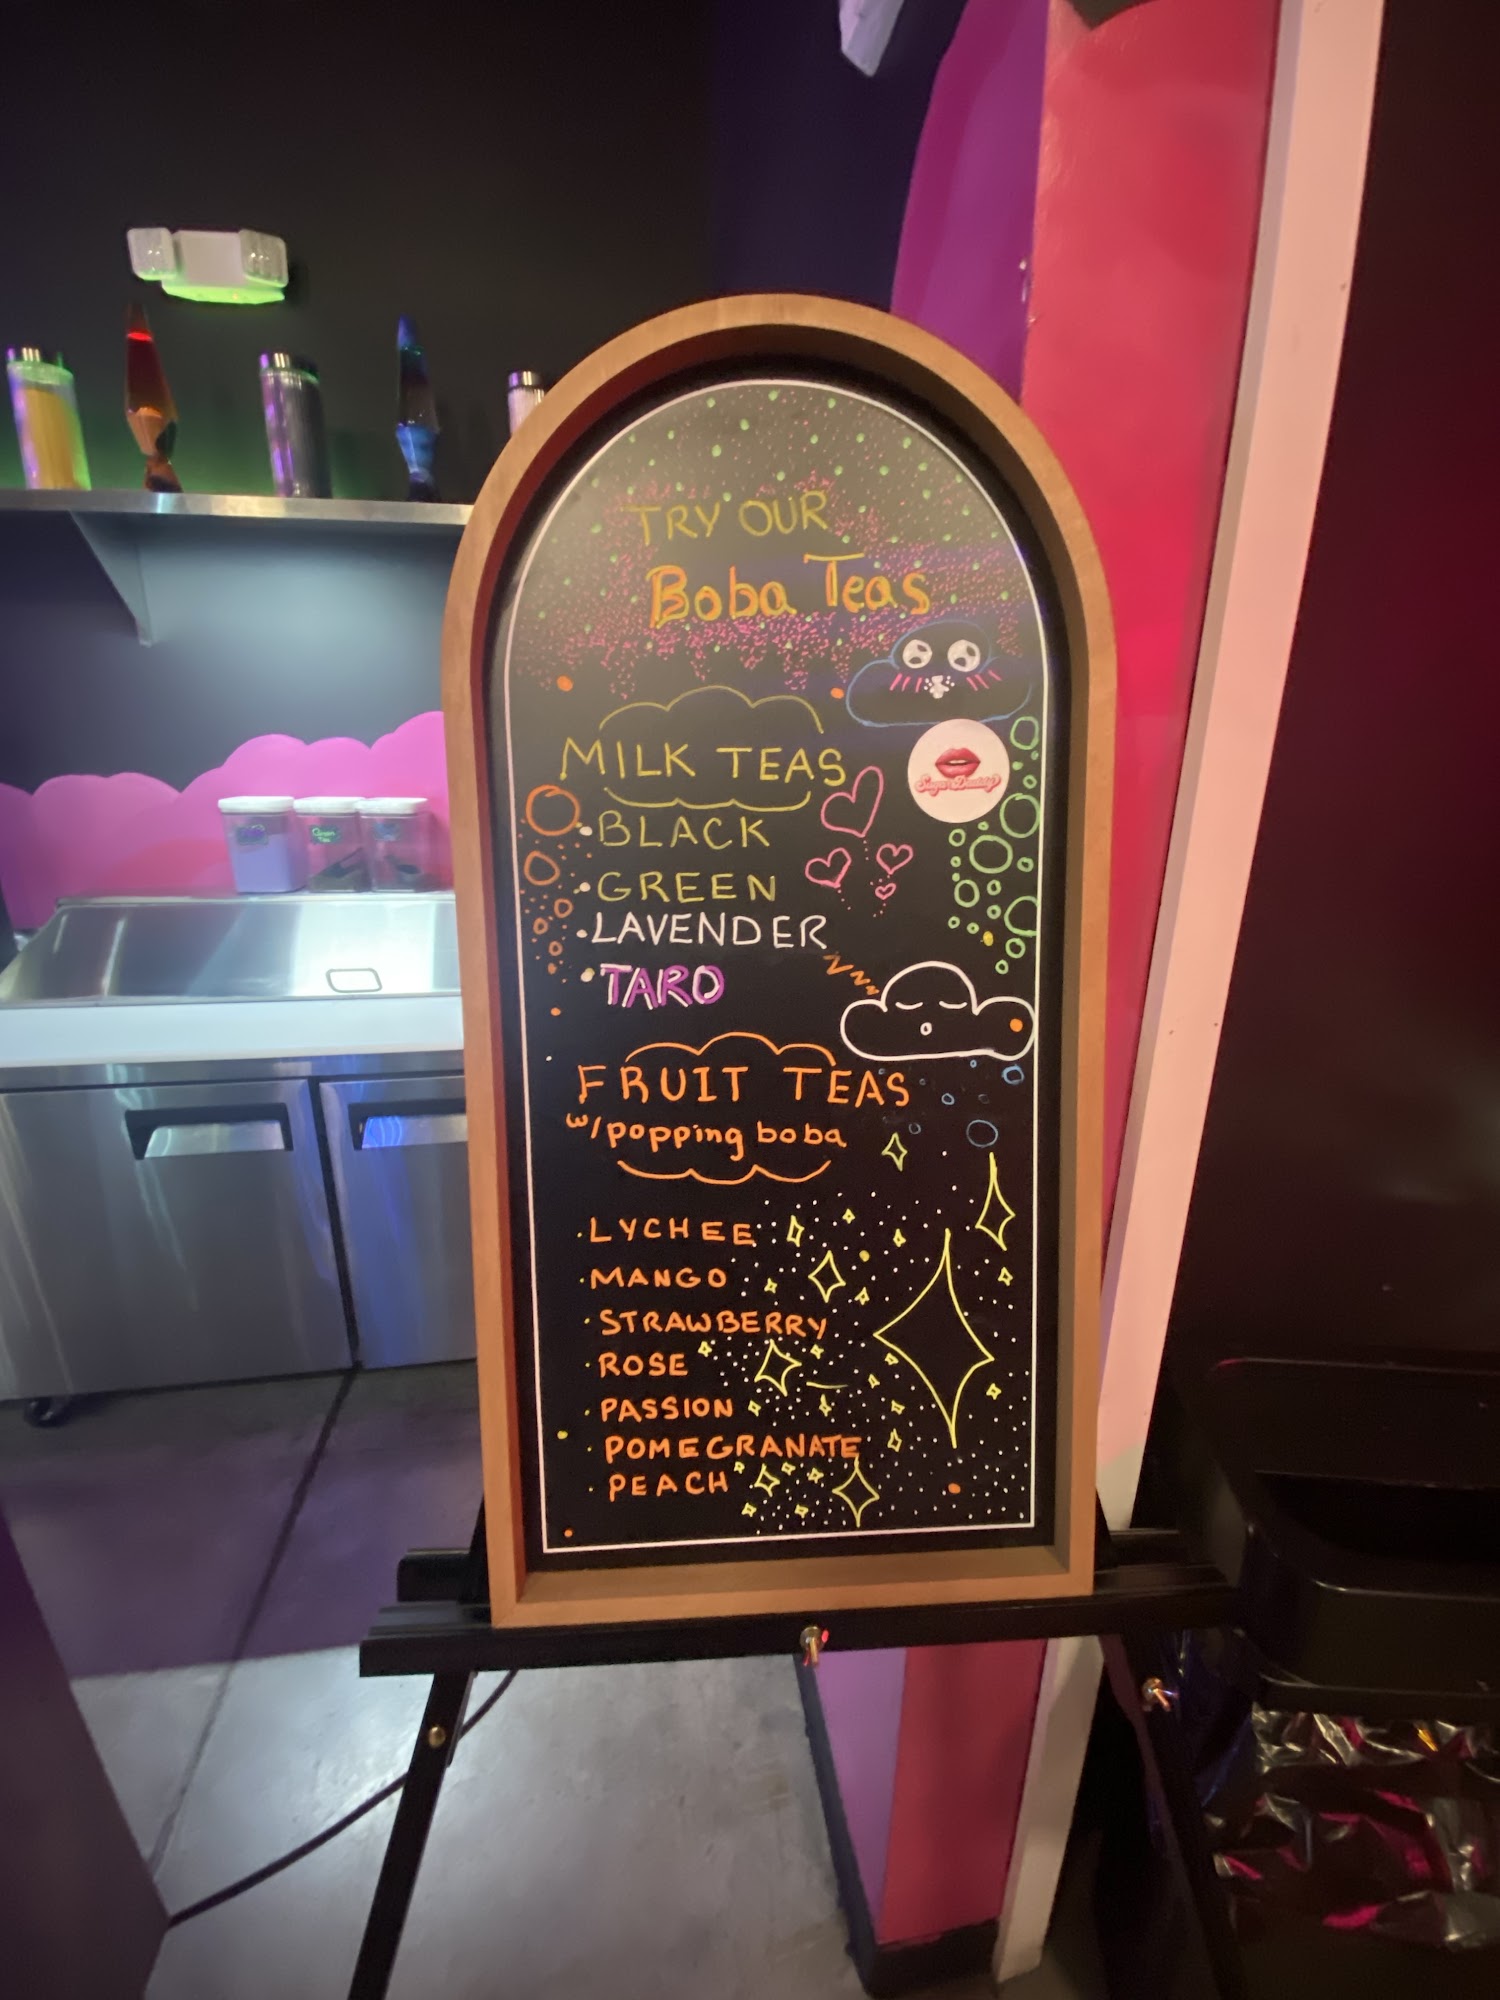 TRY OUR
Boba Teas
MILK TEAS
Sugar Daddy
• BLACK
• GREEN
• LAVENDER
• TARO
zzzz
FRUIT TEAS
w/popping boba
• LYCHEE
• MANGO
• STRAWBERRY
• ROSE
• PASSION
• POMEGRANATE
• PEACH